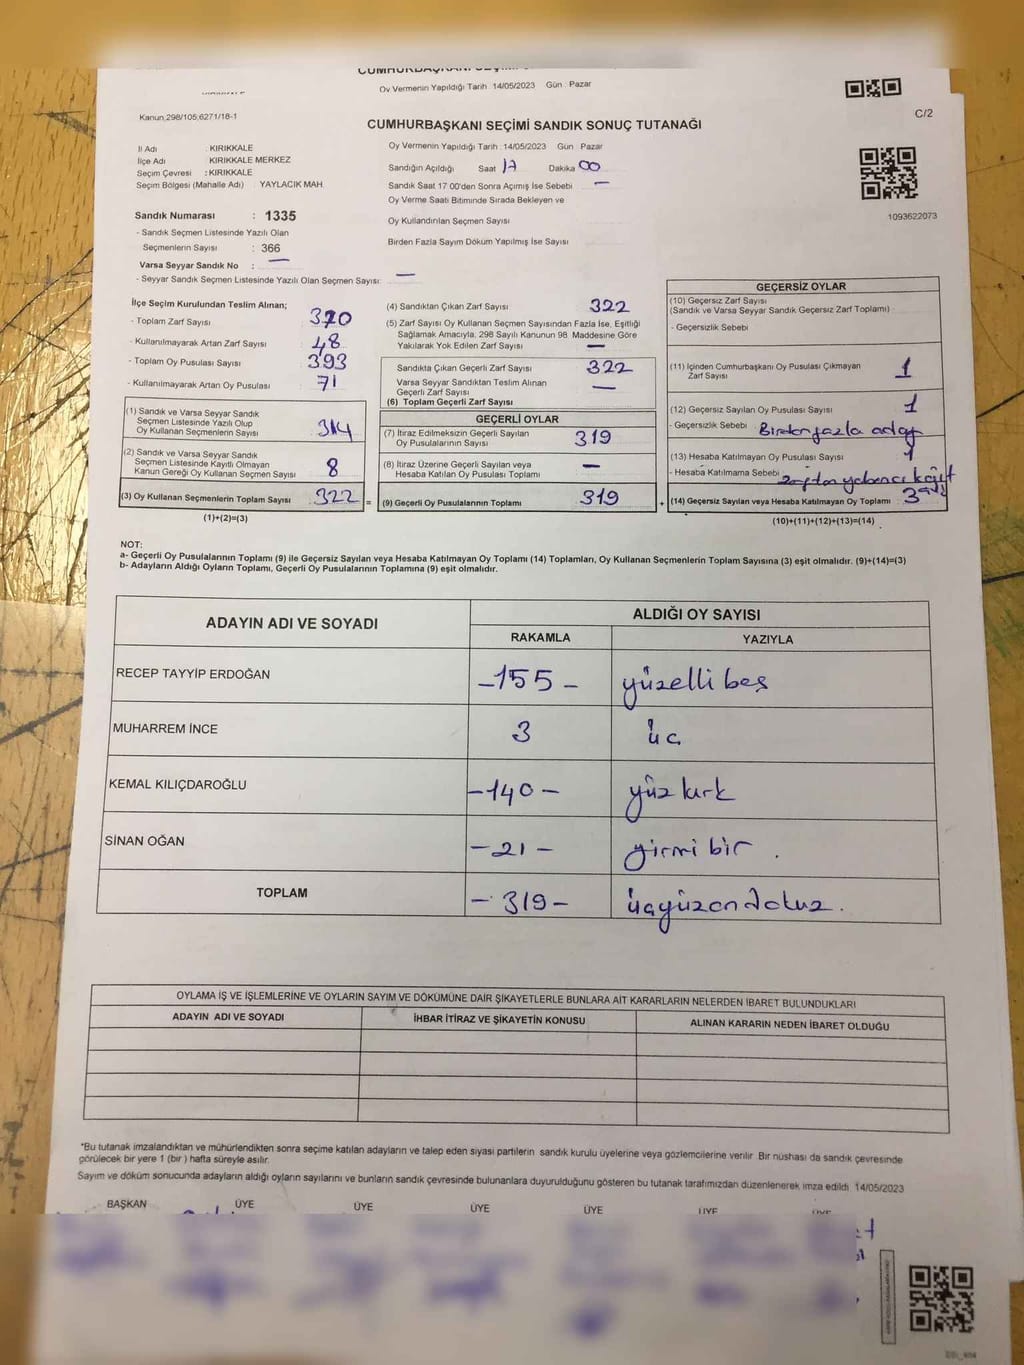 Oy Vermenin Yapıldığı Tarih 14/05/2023 Gün Pazar
Kanun,298/105,6271/18-1
C/2
CUMHURBAŞKANI SEÇİMİ SANDIK SONUÇ TUTANAĞI
İl Adı : KIRIKKALE
İlçe Adı : KIRIKKALE MERKEZ
Seçim Çevresi : KIRIKKALE
Seçim Bölgesi (Mahalle Adı) : YAYLACIK MAH.
Sandık Numarası : 1335
- Sandık Seçmen Listesinde Yazılı Olan
Seçmenlerin Sayısı : 366
Varsa Seyyar Sandık No : —
- Seyyar Sandık Seçmen Listesinde Yazılı Olan Seçmen Sayısı: —
Oy Vermenin Yapıldığı Tarih : 14/05/2023 Gün Pazar
Sandığın Açıldığı Saat 17 Dakika 00
Sandık Saat 17 00'den Sonra Açımış İse Sebebi —
Oy Verme Saati Bitiminde Sırada Bekleyen ve
Oy Kullandırılan Seçmen Sayısı
Birden Fazla Sayım Döküm Yapılmış İse Sayısı
1093622073
İlçe Seçim Kurulundan Teslim Alınan;
- Toplam Zarf Sayısı 370
- Kullanılmayarak Artan Zarf Sayısı 48
- Toplam Oy Pusulası Sayısı 393
- Kullanılmayarak Artan Oy Pusulası 71
(1) Sandık ve Varsa Seyyar Sandık
Seçmen Listesinde Yazılı Olup
Oy Kullanan Seçmenlerin Sayısı 314
(2) Sandık ve Varsa Seyyar Sandık
Seçmen Listesinde Kayıtlı Olmayan
Kanun Gereği Oy Kullanan Seçmen Sayısı 8
(3) Oy Kullanan Seçmenlerin Toplam Sayısı 322 =
(1)+(2)=(3)
(4) Sandıktan Çıkan Zarf Sayısı 322
(5) Zarf Sayısı Oy Kullanan Seçmen Sayısından Fazla İse, Eşitliği
Sağlamak Amacıyla, 298 Sayılı Kanunun 98 Maddesine Göre
Yakılarak Yok Edilen Zarf Sayısı —
Sandıkta Çıkan Geçerli Zarf Sayısı 322
Varsa Seyyar Sandıktan Teslim Alınan
Geçerli Zarf Sayısı —
(6) Toplam Geçerli Zarf Sayısı
GEÇERLİ OYLAR
(7) İtiraz Edilmeksizin Geçerli Sayılan
Oy Pusulalarının Sayısı 319
(8) İtiraz Üzerine Geçerli Sayılan veya
Hesaba Katılan Oy Pusulası Toplamı —
(9) Geçerli Oy Pusulalarının Toplamı 319 +
GEÇERSİZ OYLAR
(10) Geçersiz Zarf Sayısı
(Sandık ve Varsa Seyyar Sandık Geçersiz Zarf Toplamı)
- Geçersizlik Sebebi
(11) İçinden Cumhurbaşkanı Oy Pusulası Çıkmayan
Zarf Sayısı 1
(12) Geçersiz Sayılan Oy Pusulası Sayısı 1
- Geçersizlik Sebebi Birden fazla aday
(13) Hesaba Katılmayan Oy Pusulası Sayısı 1
- Hesaba Katılmama Sebebi zarftan yabancı kağıt
(14) Geçersiz Sayılan veya Hesaba Katılmayan Oy Toplamı 3
(10)+(11)+(12)+(13)=(14)
NOT:
a- Geçerli Oy Pusulalarının Toplamı (9) ile Geçersiz Sayılan veya Hesaba Katılmayan Oy Toplamı (14) Toplamları, Oy Kullanan Seçmenlerin Toplam Sayısına (3) eşit olmalıdır. (9)+(14)=(3)
b- Adayların Aldığı Oyların Toplamı, Geçerli Oy Pusulalarının Toplamına (9) eşit olmalıdır.
ADAYIN ADI VE SOYADI ALDIĞI OY SAYISI
RAKAMLA YAZIYLA
RECEP TAYYİP ERDOĞAN -155- yüzelli beş
MUHARREM İNCE 3 üç
KEMAL KILIÇDAROĞLU -140- yüz kırk
SİNAN OĞAN -21- yirmi bir.
TOPLAM -319- üçyüzondokuz.
OYLAMA İŞ VE İŞLEMLERİNE VE OYLARIN SAYIM VE DÖKÜMÜNE DAİR ŞİKAYETLERLE BUNLARA AİT KARARLARIN NELERDEN İBARET BULUNDUKLARI
ADAYIN ADI VE SOYADI İHBAR İTİRAZ VE ŞİKAYETİN KONUSU ALINAN KARARIN NEDEN İBARET OLDUĞU
*Bu tutanak imzalandıktan ve mühürlendikten sonra seçime katılan adayların ve talep eden siyasi partilerin sandık kurulu üyelerine veya gözlemcilerine verilir Bir nüshası da sandık çevresinde
görülecek bir yere 1 (bir) hafta süreyle asılır.
Sayım ve döküm sonucunda adayların aldığı oyların sayılarını ve bunların sandık çevresinde bulunanlara duyurulduğunu gösteren bu tutanak tarafımızdan düzenlenerek imza edildi 14/05/2023
BAŞKAN ÜYE ÜYE ÜYE ÜYE ÜYE ÜYE